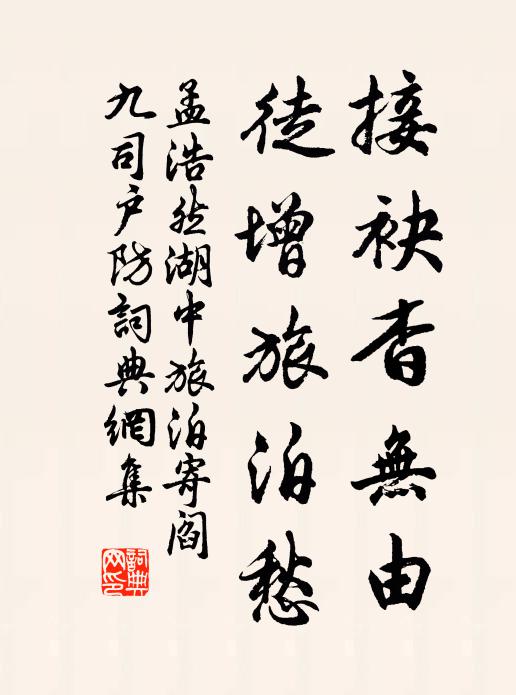 接袂杳無由
徒增旅泊愁
孟浩然湖中旅泊寄閻
九司户防詞典網集
詞典
网印